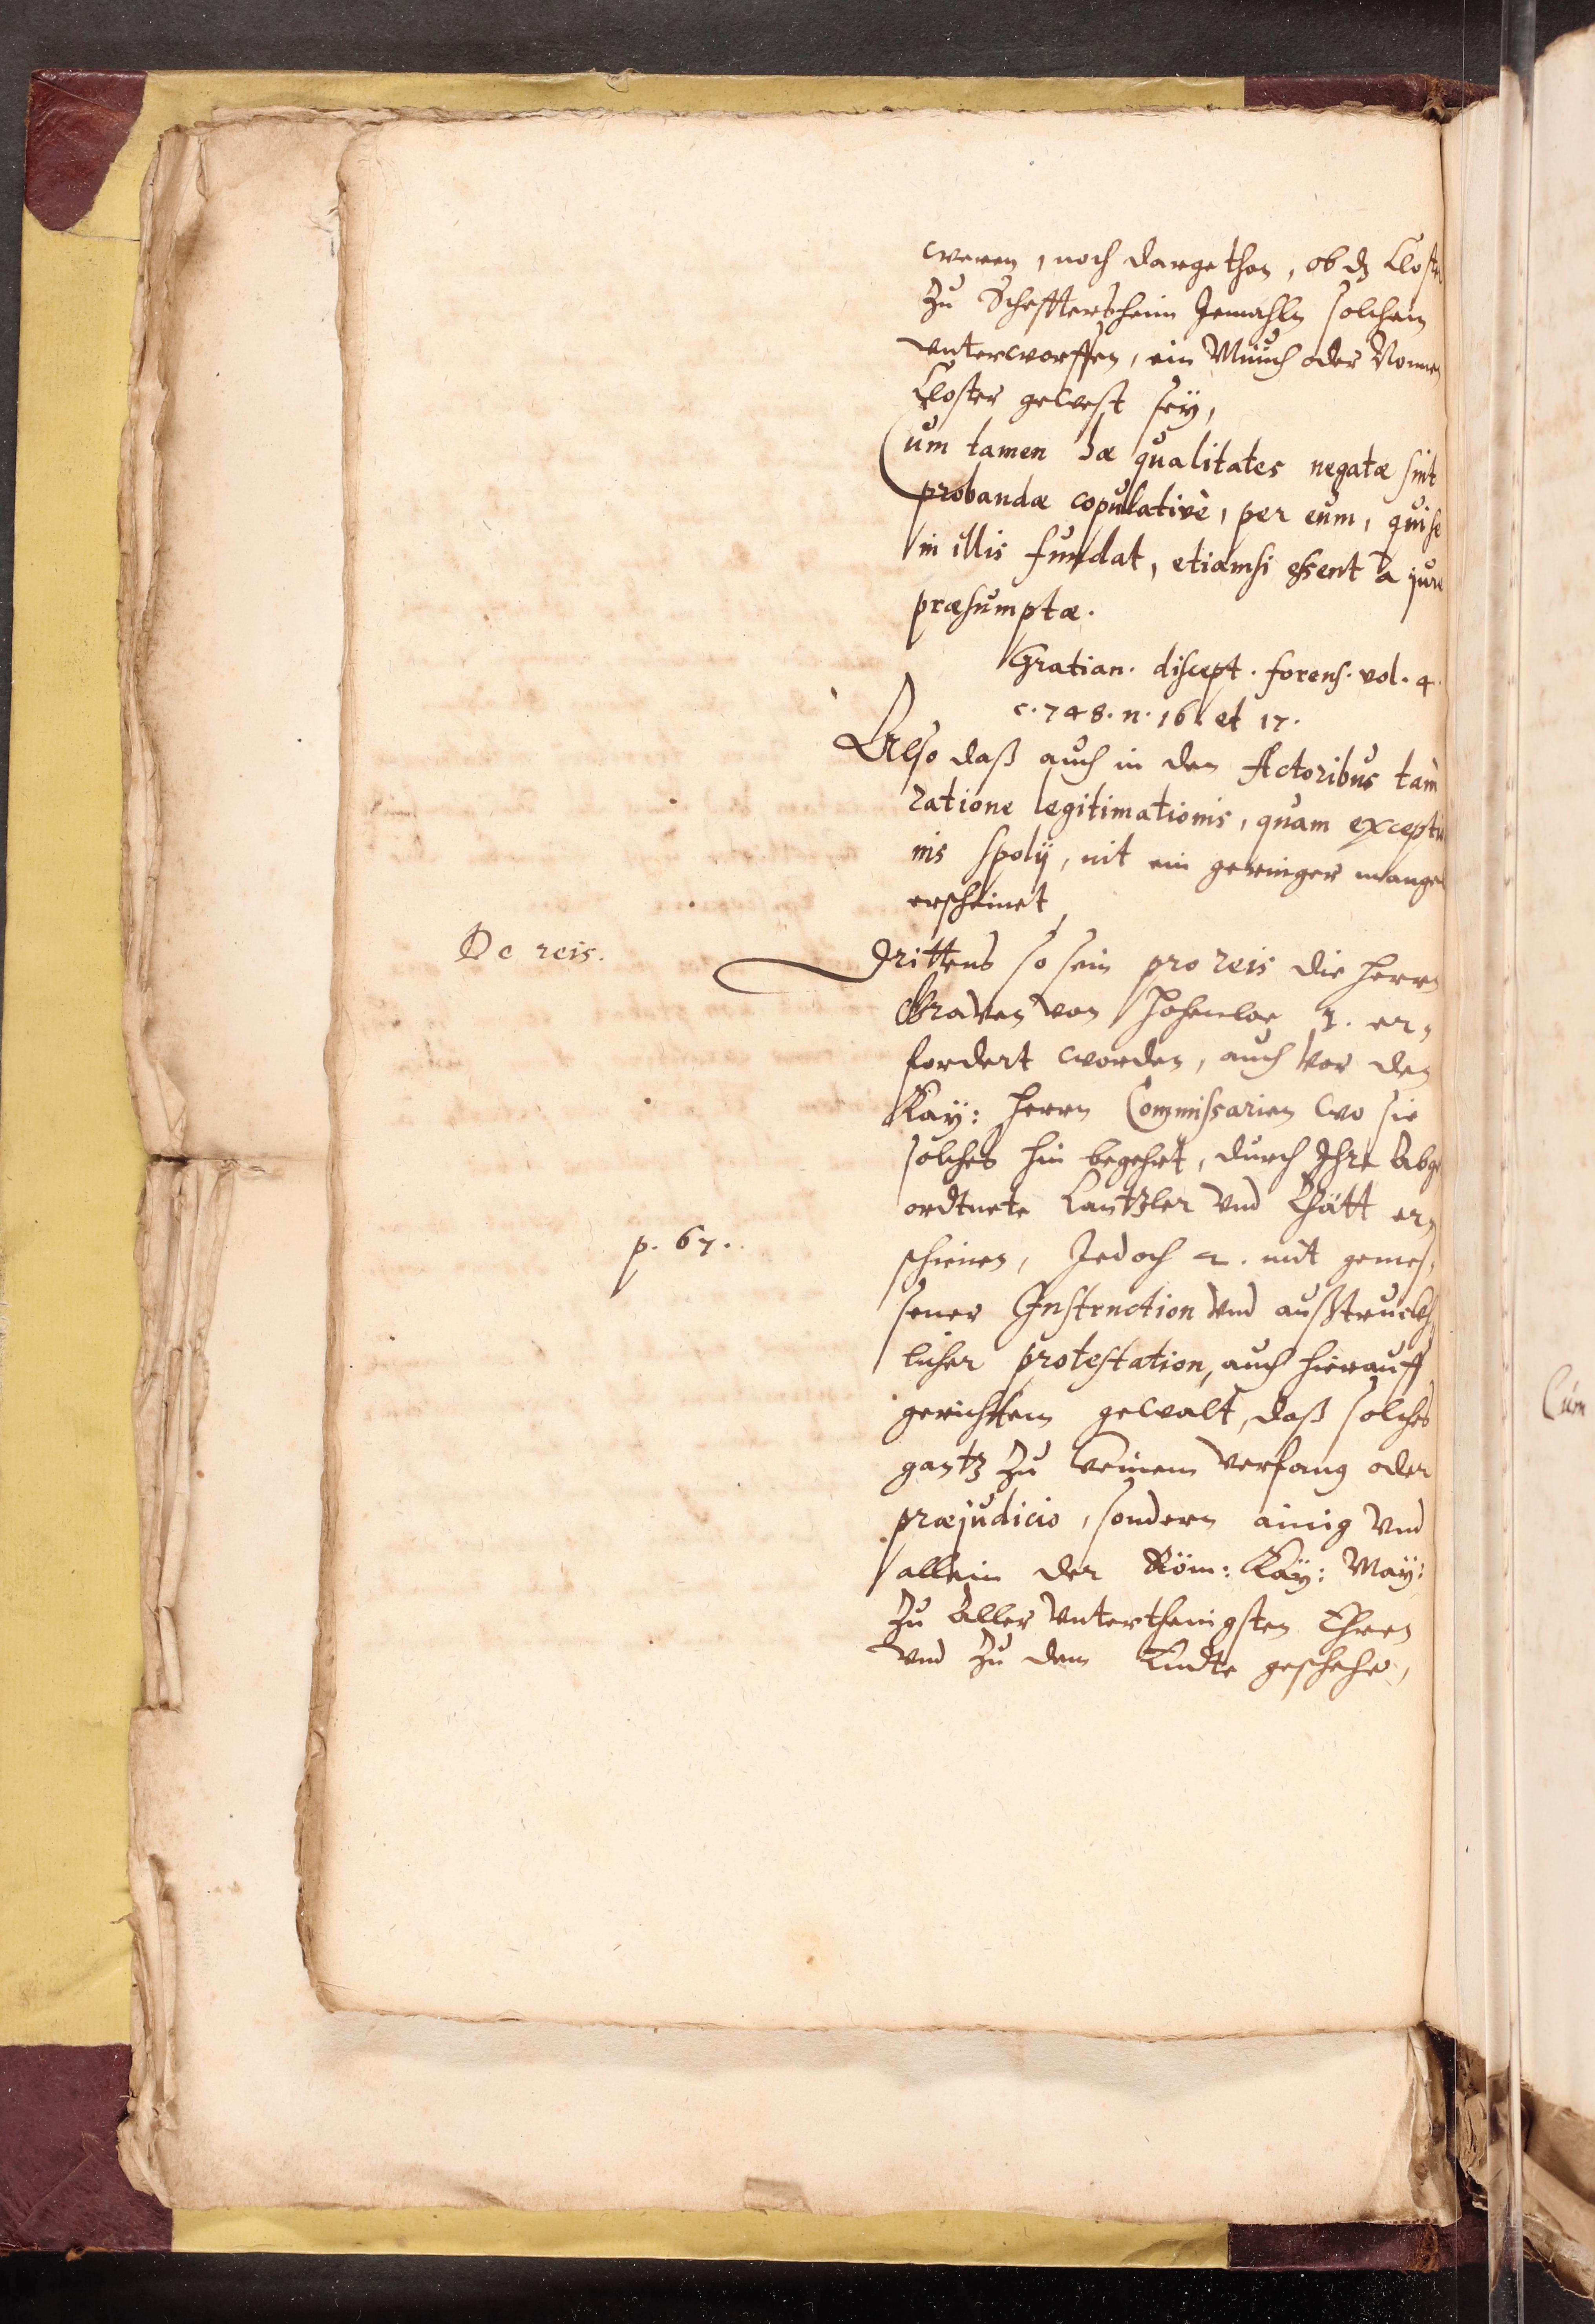 weren, noch dargethon, ob dz Closter
zu Scheffterßheim Jemahln solchem
vnterworffen, ein Münch oder Nonnen
Closter gewest seÿ,
Cum tamen hæ qualitates negatæ sint
probandæ copulativè, per eum, qui se
in illis fundat, etiamsi essent à jure
præsumptæ.
Gratian. discept. forens. vol. 4.
c. 748. n. 16. et 17.
Also daß auch in den Actoribus tam
ratione legitimationis, quam exceptio
nis spolij, nit ein geringer mangel
erscheinet,
De reis.
Drittens so sein pro reis die herrn
Graven von Hohenloe 1. er,
fordert worden, auch vor den
Kaÿ: herrn Commissarien wo sie
solches hin begehrt, durch Ihre Abge
ordtnete Cantzler vnd Rhätt er,
p. 67.
schienen, Jedoch 2. mit gemes,
sener Instruction vnd außtruckh,
licher protestation, auch hierauff
gerichtem gewalt, daß solches
gantz zu keinem verfang oder
præjudicio, sondern ainig vnd
allein der Röm: Kaÿ: Maÿ:
zu aller vnterthenigsten Ehren
vnd zu dem Endte geschehe,
Cum